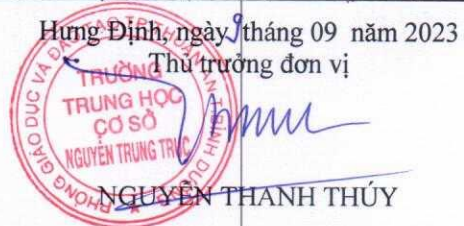 Hưng Định, ngày 9 tháng 09 năm 2023
Thủ trưởng đơn vị
PHÒNG GIÁO DỤC VÀ ĐÀO TẠO TP THUẬN AN T.BÌNH DƯƠNG
TRƯỜNG
TRUNG HỌC
CƠ SỞ
NGUYỄN TRUNG TRỰC
NGUYỄN THANH THÚY